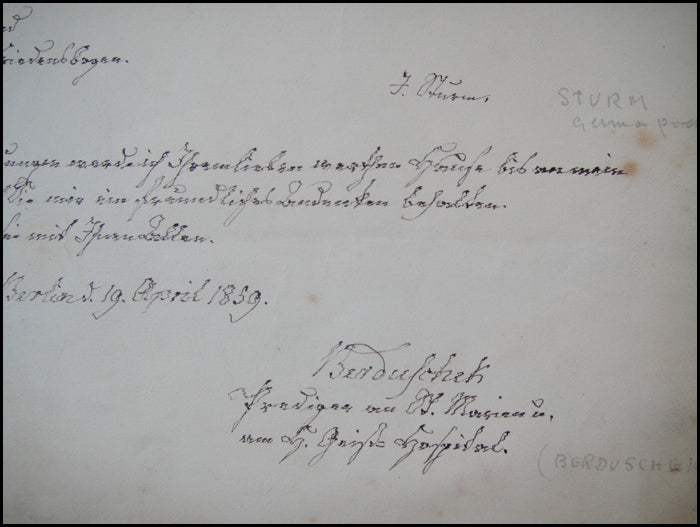 nd
riedensbogen.
J. Sturm.
STURM
German poet
ungen werde ich Ihrem lieben werthen Hause bis an mein
Sie mir ein freundliches Andenken behalten.
Sie mit Ihren Allen.
Berlin d. 19. April 1859.
Berduschek
Prediger an St. Marien u.
am H. Geist-Hospital.
(BERDUSCHEK